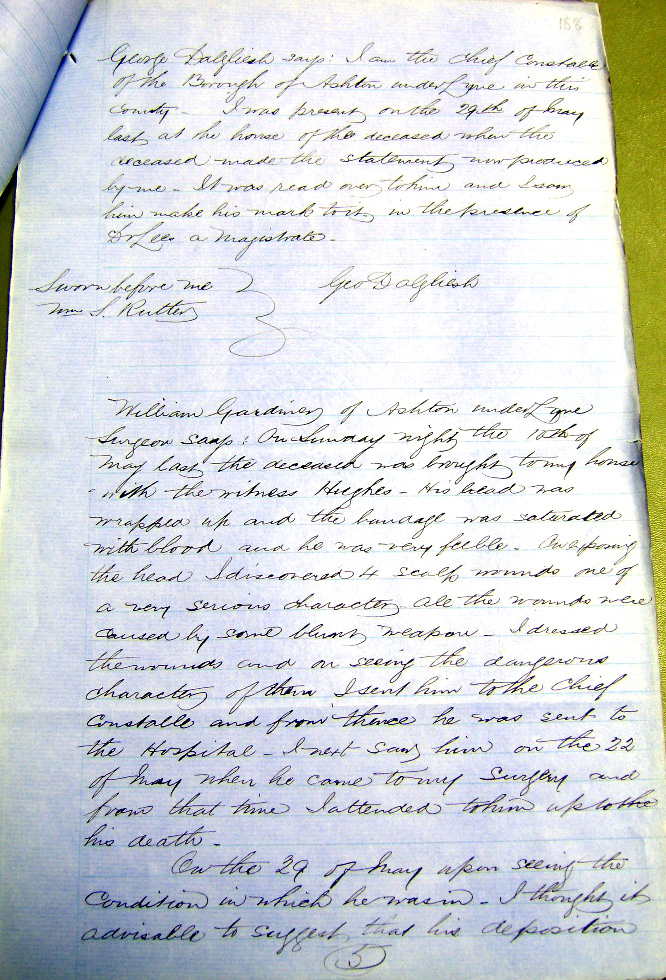 188
George Dalgliesh says: I am the Chief Constable
of the Borough of Ashton under Lyne in this
County - I was present on the 29th of May
last at the house of the deceased when the
deceased made the statement now produced
by me - It was read over to him and I saw
him make his mark to it in the presence of
Dr Lees a Magistrate -
Sworn before me
Geo Dalgliesh
Wm S. Rutter
William Gardiner of Ashton under Lyne
Surgeon says: On Sunday night the 10th of
May last the deceased was brought to my house
with the witness Hughes - His head was
wrapped up and the bandage was saturated
with blood and he was very feeble - On exposing
the head I discovered 4 scalp wounds one of
a very serious character all the wounds were
caused by some blunt weapon - I dressed
the wounds and on seeing the dangerous
character of them I sent him to the Chief
Constable and from thence he was sent to
the Hospital - I next saw him on the 22
of May when he came to my Surgery and
from that time I attended to him up to the
his death -
On the 29 of May upon seeing the
Condition in which he was in - I thought it
advisable to suggest that his deposition
5